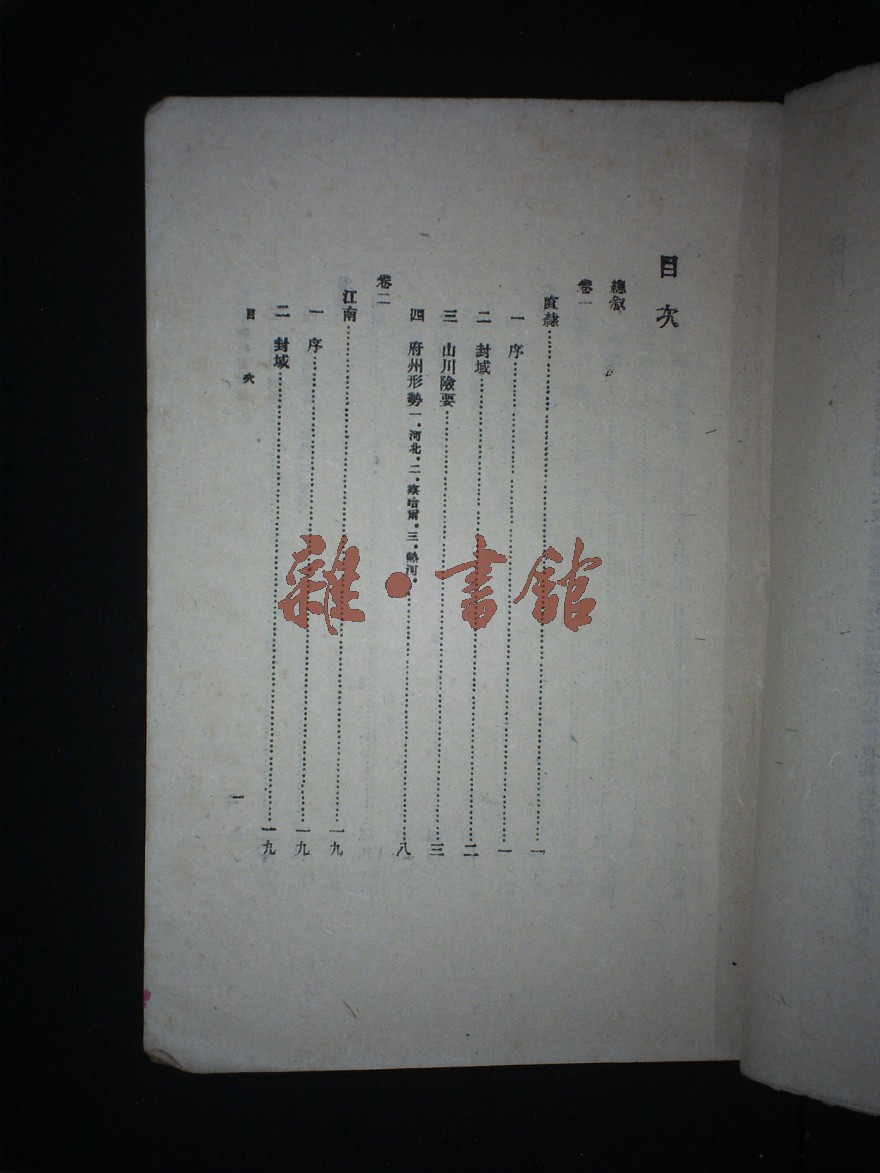 目次
總叙
卷一
直隸……一
一 序……一
二 封域……二
三 山川險要……三
四 府州形勢 一．河北．二．察哈爾．三．熱河．……八
卷二
江南……一九
一 序……一九
二 封域……一九
目次
一
雜·書館